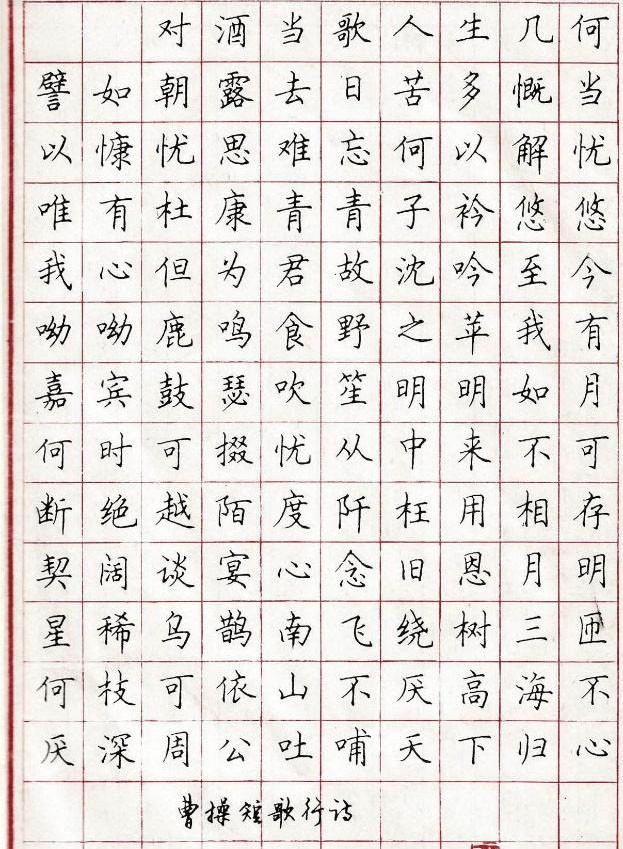 对酒当歌人生几何
譬如朝露去日苦多慨当
以慷忧思难忘何以解忧
唯有杜康青青子衿悠悠
我心但为君故沈吟至今
呦呦鹿鸣食野之苹我有
嘉宾鼓瑟吹笙明明如月
何时可掇忧从中来不可
断绝越陌度阡枉用相存
契阔谈宴心念旧恩月明
星稀乌鹊南飞绕树三匝
何枝可依山不厌高海不
厌深周公吐哺天下归心
曹操短歌行诗